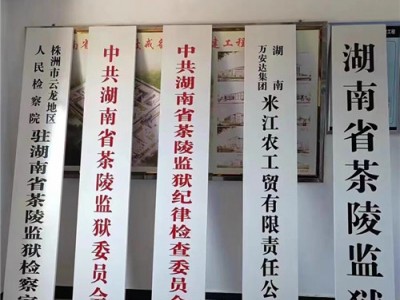 株洲市云龙地区
人民检察院
驻湖南省茶陵监狱检察室
中共湖南省茶陵监狱委员会
中共湖南省茶陵监狱纪律检查委员会
湖南
万安达集团
米江农工贸有限责任公
湖南省茶陵监狱